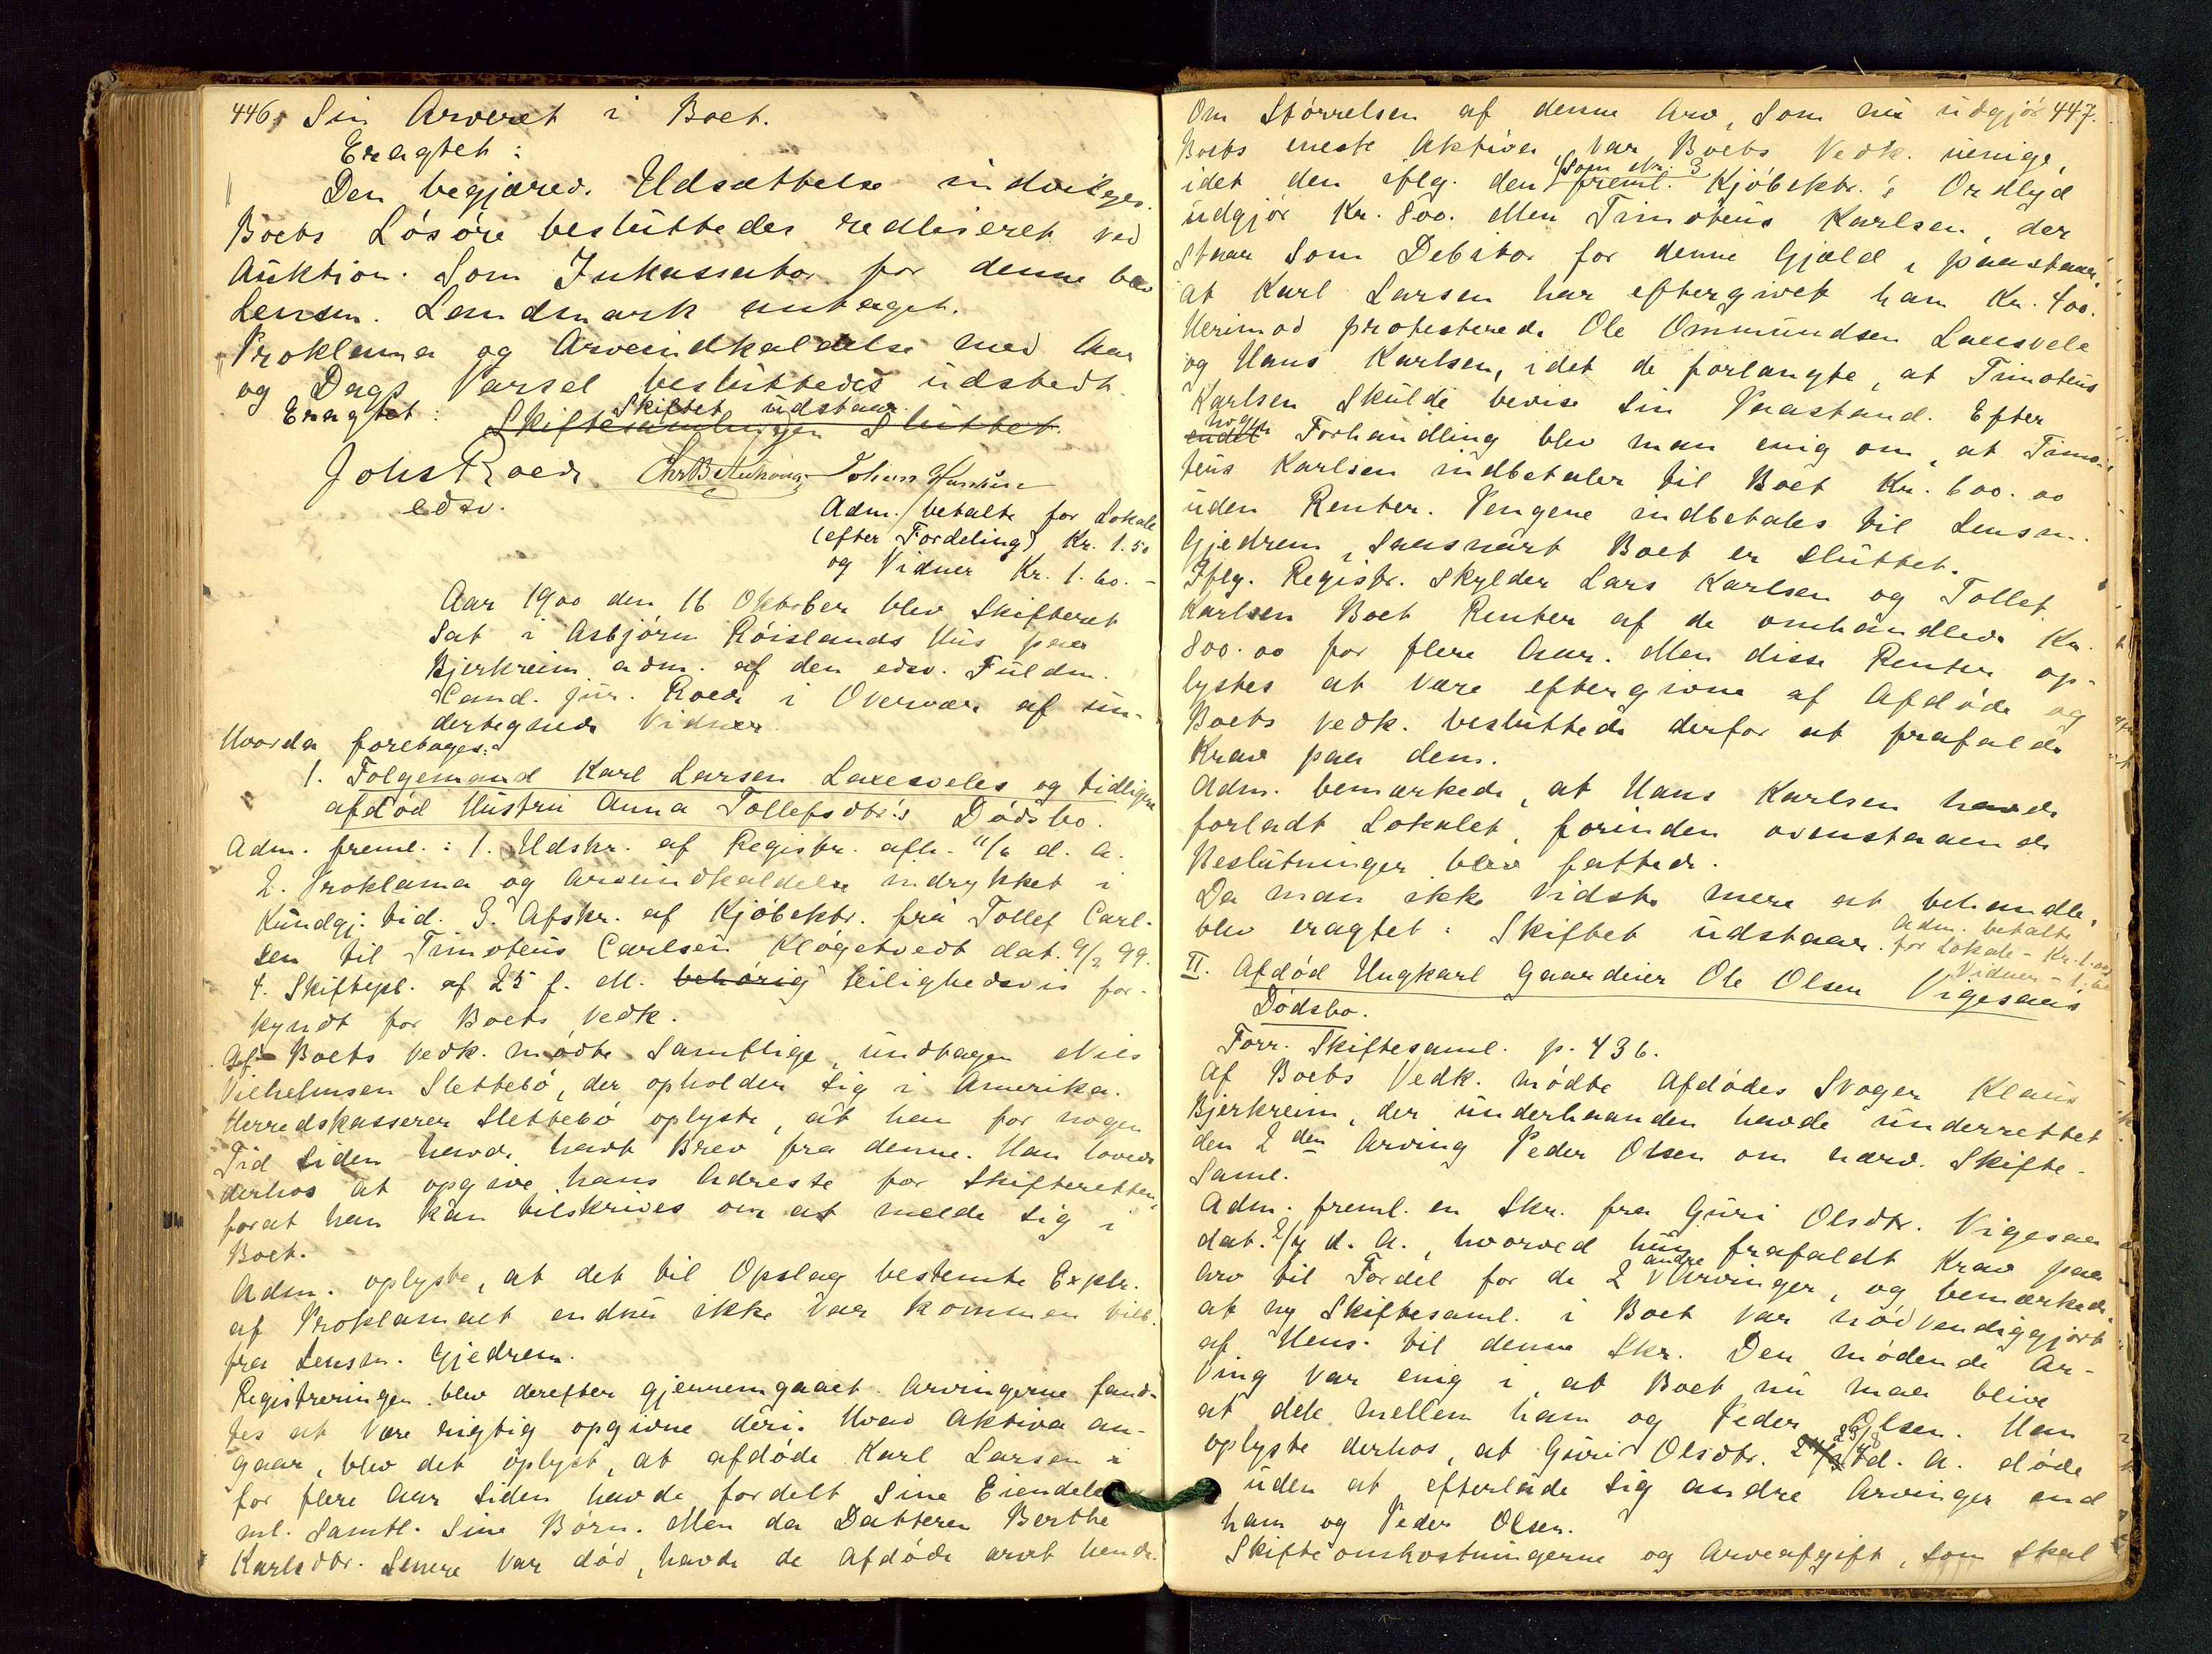 446. Sin Arveret i Boet.
Eragtet:
Den begjærede Udsættelse indvilges.
Boets Løsøre besluttedes realiseret ved
Auktion. Som Inkassator for denne blev
Lensm. Landmark antaget.
Proklama og Arveindkaldelse med Aar
og Dags Varsel besluttedes udstedt.
Eragtet: Skiftet udstaar.
Skiftesamlingen Sluttet.
Johs Roede
edsv.
Adm. betalte for Lokale
(efter Fordeling) Kr. 1.50
og Vidner Kr. 1.60.-
Aar 1900 den 16 Oktober blev Skifteret
sat i Asbjørn Røislands Hus paa
Bjerkreim adm. af den edsv. Fuldm.
Cand. jur. Roede i Overvær af un-
dertegnede Vidner.
Hvorda foretages:
1. Folgemand Karl Larsen Laxesveles og tidligere
afdød Hustru Anna Tollefsdtr.'s Dødsbo.
Adm. freml.: 1. Udskr. af Registr. afh. 11/6 d. A.
2. Proklama og Arveindkaldelse indrykket i
Kundgj. tid. 3. Afskr. af Kjøbektr. fra Tollef Carl-
sen til Timoteus Carlsen Kløgetvedt dat. 9/2 99.
4. Skiftepl. af 25 f. M. behørig leilighedsvis for-
kyndt for Boets Vedk.
Af Boets Vedk. mødte Samtlige, undtagen Nils
Vilhelmsen Slettebø, der opholder sig i Amerika.
Herredskasserer Slettebø oplyste, at han for nogen
Tid siden havde havt Brev fra denne. Han lovede
derhos at opgive hans Adresse for Skifteretten,
forat han kan tilskrives om at melde sig i
Boet.
Adm. oplyste, at det til Opslag bestemte Explr.
af Proklamaet endnu ikke var kommen tilb.
fra Lensm. Gjedrem.
Registreringen blev derefter gjennemgaaet. Arvingerne fand-
tes at være rigtig opgivne deri. Hvad Aktiva an-
gaar, blev det oplyst, at afdøde Karl Larsen
for flere Aar siden havde fordelt sine Eiendele
ml. samtl. sine Børn. Men da Datteren Berthe
Karlsdtr. senere var død, havde de Afdøde arvet hende.
Om Størrelsen af denne Arv, som nu udgjør 447.
Boets eneste Aktiva, var Boets Vedk. uenige,
idet den iflg. den som Nr. 3 freml. Kjøbektr.'s Ordlyd
udgjør Kr. 800. Men Timoteus Karlsen, der
staar som Debitor for denne Gjæld, paastaar,
at Karl Larsen har eftergivet ham Kr. 400.
Herimod protesterede Ole Ommundsen Laxesvele
og Hans Karlsen, idet de forlangte, at Timoteus
Karlsen skulde bevise sin Paastand. Efter
nogen Forhandling blev man enig om, at Timo-
teus Karlsen indbetaler til Boet Kr. 600.00
uden Renter. Pengene indbetales til Lensm.
Gjedrem, saasnart Boet er sluttet.
Iflg. Registr. skylder Lars Karlsen og Tollef
Karlsen Boet Renter af de omhandlede Kr.
800.00 for flere Aar. Men disse Renter op-
lystes at være eftergivne af Afdøde og
Boets Vedk. besluttede derfor at frafalde
Krav paa dem.
Adm. bemærkede, at Hans Karlsen havde
forladt Lokalet, forinden ovenstaaende
Beslutninger blev fattede.
Da man ikke vidste mere at behandle,
blev eragtet: Skiftet udstaar. Adm. betalte
for Lokale - Kr. 1.00
Vidner - 1.60
II. Afdød Ungkarl Gaardeier Ole Olsen Vigesaas
Dødsbo.
Forr. Skiftesaml. p. 436.
Af Boets Vedk. mødte Afdødes Svoger Klaus
Bjerkreim, der underhaanden havde underrettet
den 2den Arving Peder Olsen om nærv. Skifte-
saml.
Adm. freml. en Skr. fra Guri Olsdtr. Vigesaa
dat. 2/7 d. A., hvorved hun frafaldt Krav paa
Arv til Fordel for de 2 andre Arvinger, og bemærkede
at ny Skiftesaml. i Boet var nødvendiggjort
af Hens. til denne Skr. Den mødende Ar-
ving var enig i, at Boet nu maa blive
at dele mellem ham og Peder Olsen. Han
oplyste derhos, at Guri Olsdtr. 23/8 d. A. døde
uden at efterlade sig andre Arvinger end
ham og Peder Olsen.
Skifteomkostningerne og Arveafgift, som skal